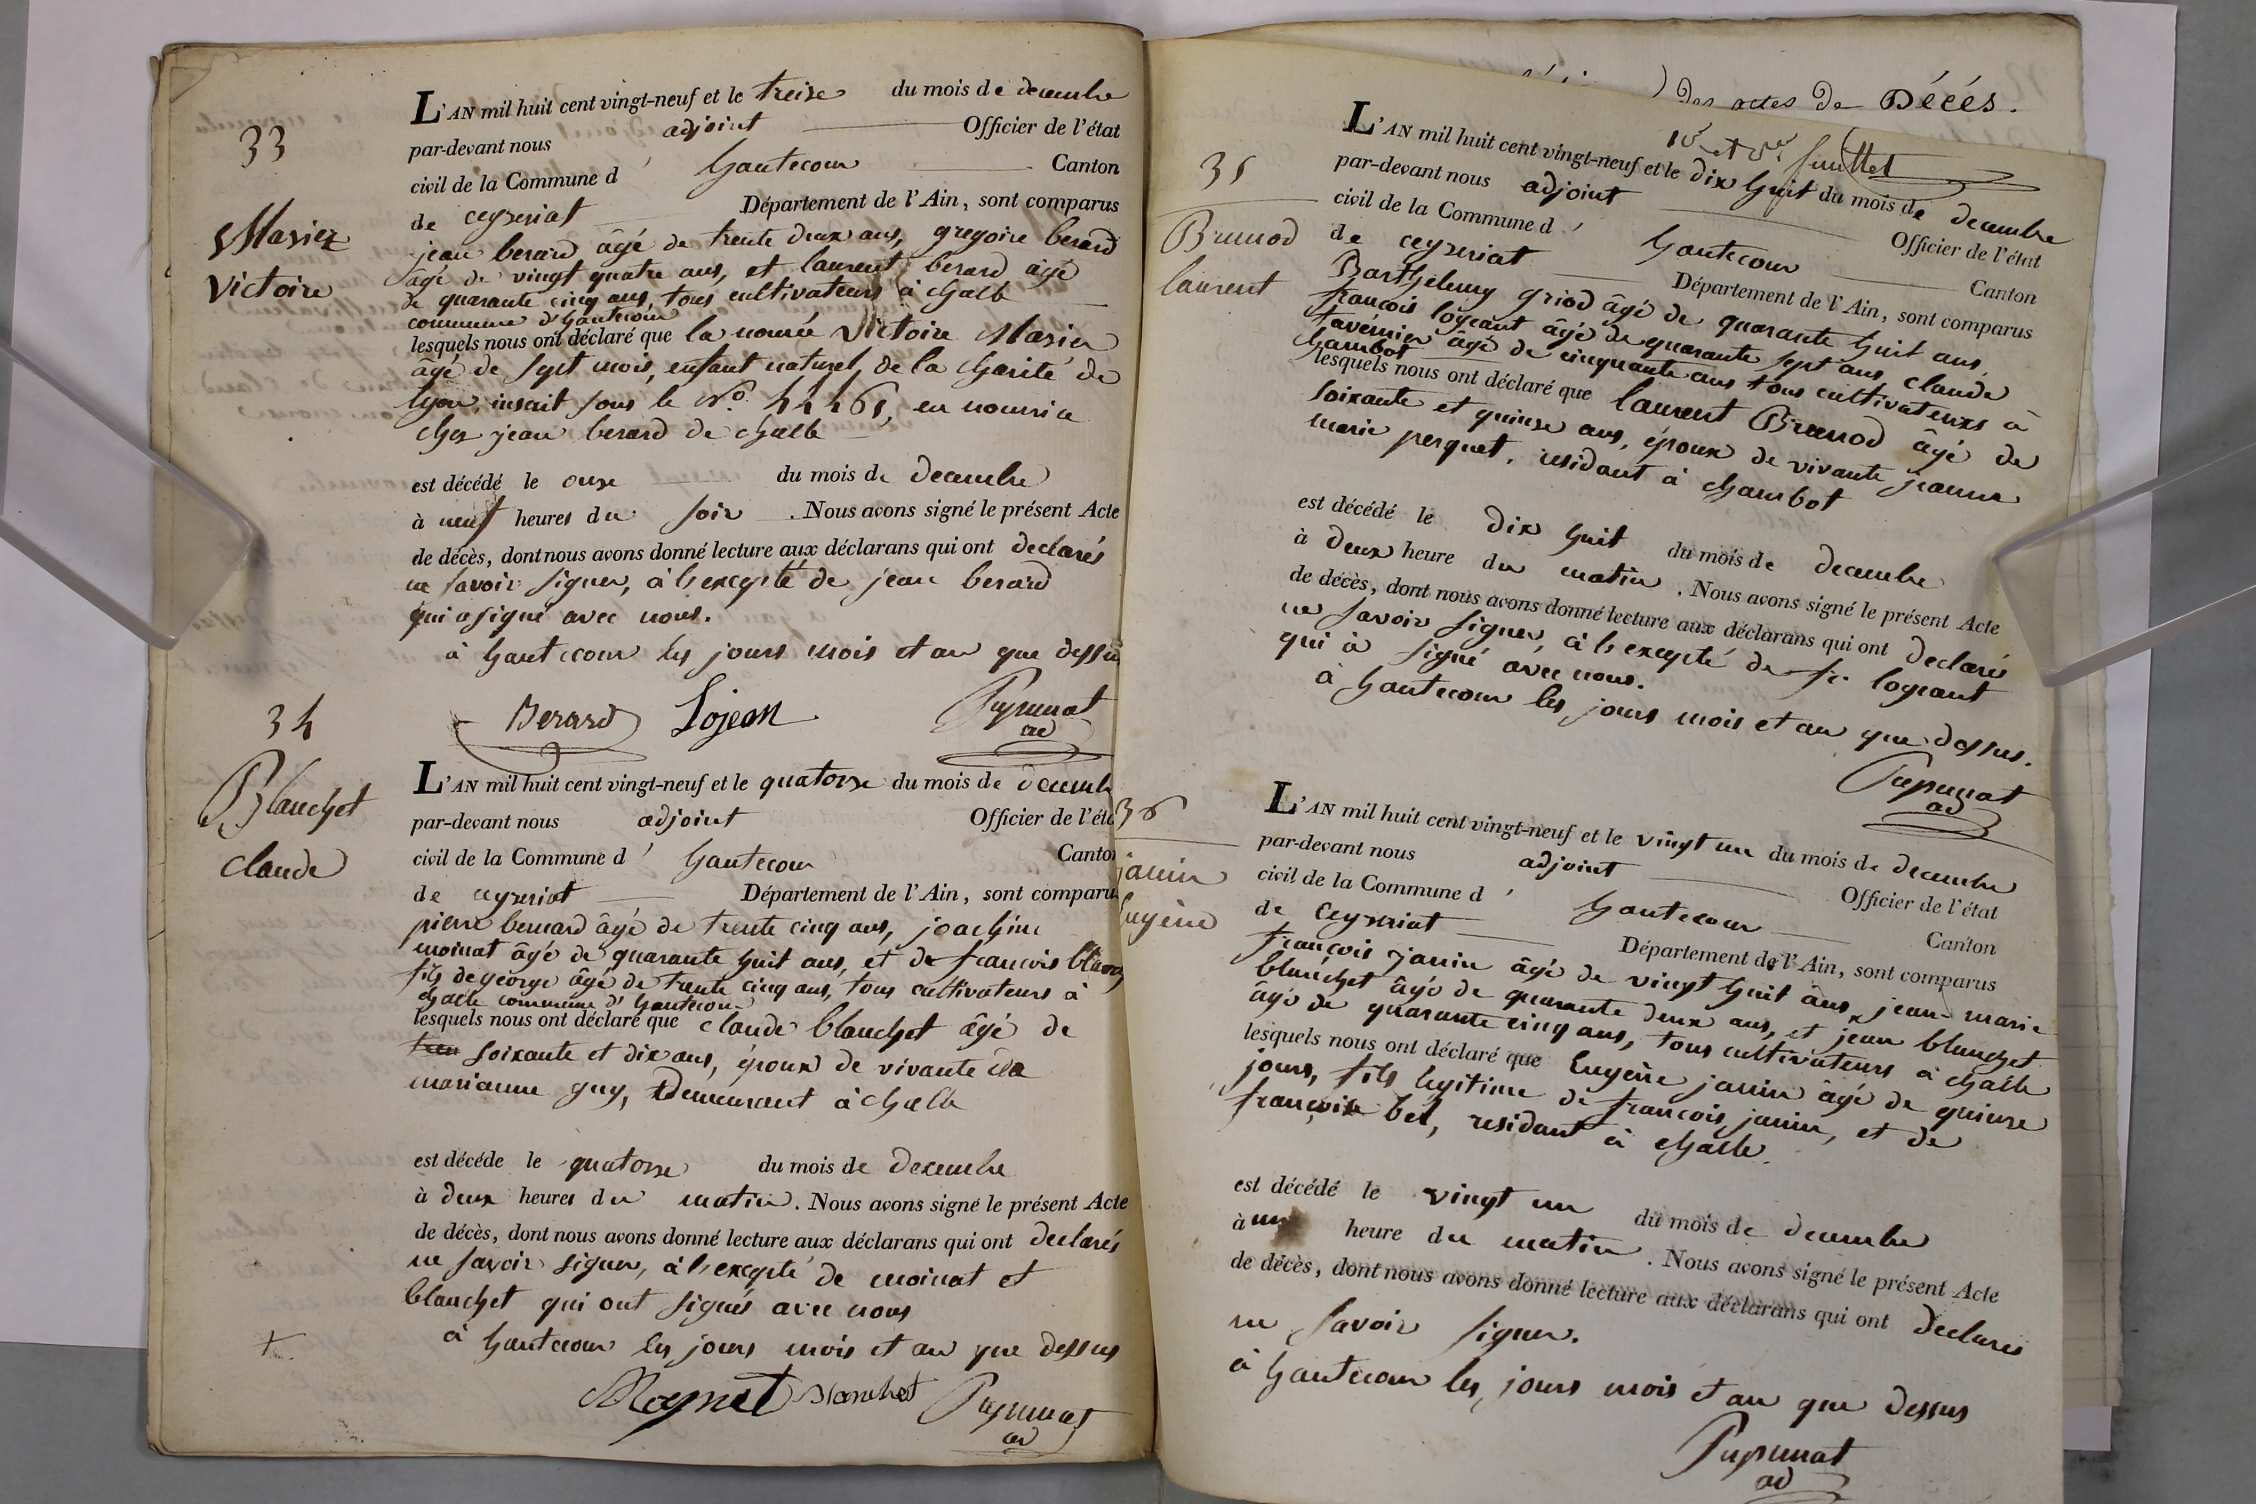 33
Masier
Victoire
L'AN mil huit cent vingt-neuf et le treize du mois de decembre
par-devant nous adjoint Officier de l'état
civil de la Commune d' hautecour Canton
de ceyzeriat Département de l'Ain, sont comparus
jean berard âgé de trente deux ans, gregoire berard
âgé de vingt quatre ans, et laurent berard âgé
de quarante cinq ans, tous cultivateurs à chalb
commune d'hautecour
lesquels nous ont déclaré que la nomée Victoire Masier
âgé de sept mois, enfant naturel de la charité de
lyon, inscrit sous le N° en nourrice
chez jean berard de chalb
est décédé le onze du mois de decembre
à neuf heures du soir . Nous avons signé le présent Acte
de décès, dont nous avons donné lecture aux déclarans qui ont declarés
ne savoir signer, à l'excepté de jean berard
qui a signé avec nous.
à hautecour les jours mois et an que dessus
Berard Lojean Pupunat
ad
34
Blanchet
claude
L'AN mil huit cent vingt-neuf et le quatorze du mois de decemb
par-devant nous adjoint Officier de l'éta
civil de la Commune d' hautecour Canton
de ceyzeriat Département de l'Ain, sont comparus
pierre bernard âgé de trente cinq ans, joachim
moinat âgé de quarante huit ans, et de francois blanc
fils de george âgé de trente cinq ans, tous cultivateurs à
chalb commune d'hautecour
lesquels nous ont déclaré que claude blanchet âgé de
soixante et dix ans, époux de vivante
marianne guy, demeurant à chalb
est décéde le quatorze du mois de decembre
à deux heures du matin. Nous avons signé le présent Acte
de décès, dont nous avons donné lecture aux déclarans qui ont declarés
ne savoir signer, à l'excepté de moinat et
blanchet qui ont signés avec nous
à hautecour les jours mois et an que dessus
Blanchet Pupunat
ad
des actes de Décés.
35
Brunod
laurent
L'AN mil huit cent vingt-neuf et le dix huit du mois de decembre
par-devant nous adjoint Officier de l'état
civil de la Commune d' hautecour Canton
de ceyzeriat Département de l'Ain, sont comparus
Barthelemy griod âgé de quarante huit ans,
françois logeant âgé de quarante sept ans, claude
tavernier âgé de cinquante ans tous cultivateurs à
chambot
lesquels nous ont déclaré que laurent Brunod âgé de
soixante et quinze ans, époux de vivante jeanne
marie perquet, residant à chambot
est décédé le dix huit du mois de decembre
à deux heure du matin . Nous avons signé le présent Acte
de décès, dont nous avons donné lecture aux déclarans qui ont declarés
ne savoir signer, à l'excepté de fr. logeant
qui à signé avec nous.
à hautecour les jours mois et an que dessus.
Pupunat
ad
36
janin
Eugène
L'AN mil huit cent vingt-neuf et le vingt un du mois de decembre
par-devant nous adjoint Officier de l'état
civil de la Commune d' hautecour Canton
de Ceyzeriat Département de l'Ain, sont comparus
françois janin âgé de vingt huit ans, jean marie
blanchet âgé de quarante deux ans, et jean blanchet
âgé de quarante cinq ans, tous cultivateurs à chalb
lesquels nous ont déclaré que Eugène janin âgé de quinze
jours, fils legitime de françois janin, et de
françoise bel, residant à chalb.
est décédé le vingt un du mois de decembre
à une heure du matin . Nous avons signé le présent Acte
de décès, dont nous avons donné lecture aux déclarans qui ont declarés
ne savoir signer.
à hautecour les jours mois et an que dessus
Pupunat
ad